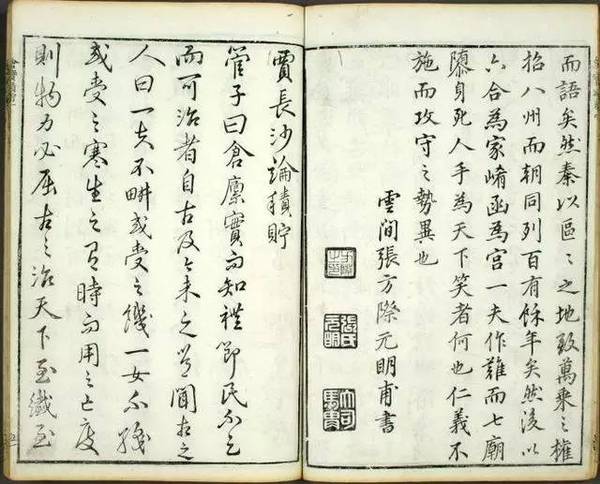 而語矣然秦以區〻之地致萬乘之權
招八州而朝同列百有餘年矣然後以
六合為家崤函為宮一夫作難而七廟
隳身死人手為天下笑者何也仁義不
施而攻守之勢異也
雲間張方際元明甫書
張氏元明
賈長沙論積貯
管子曰倉廩實而知禮節民不足
而可治者自古及今未之嘗聞古之
人曰一夫不畊或受之饑一女不織
或受之寒生之有時而用之亡度
則物力必屈古之治天下至纖至